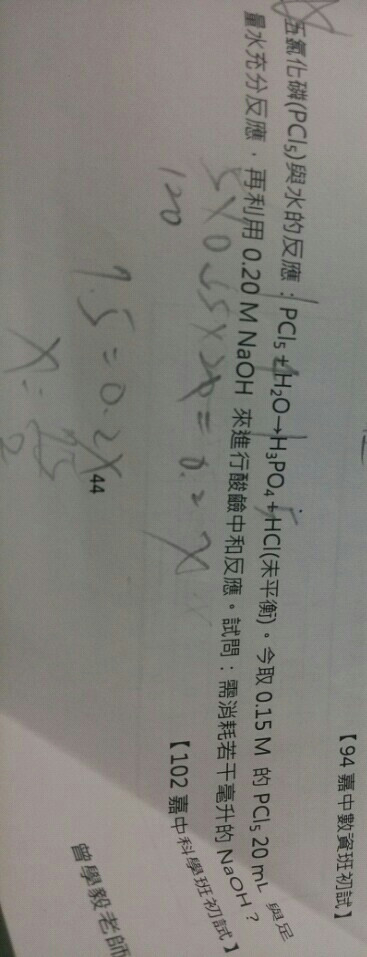 【94 嘉中數資班初試】
五氯化磷(PCl5)與水的反應：PCl5+H2O→H3PO4+HCl(未平衡)。今取 0.15 M 的 PCl5 20 mL 與足
量水充分反應，再利用 0.20 M NaOH 來進行酸鹼中和反應。試問：需消耗若干毫升的 NaOH？
【102 嘉中科學班初試】
120
7.5=0.2X
44
曾學毅老師